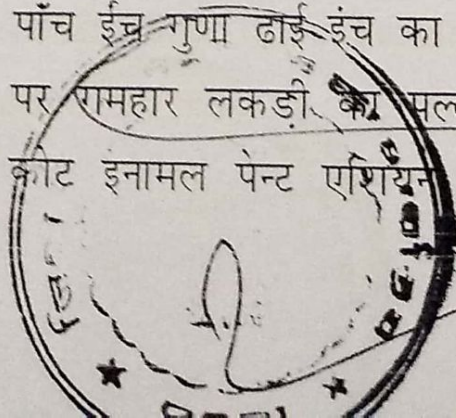 पाँच ईंच गुणा ढाई इंच का
पर गमहार लकड़ी का पल
कोट इनामल पेन्ट एशियन